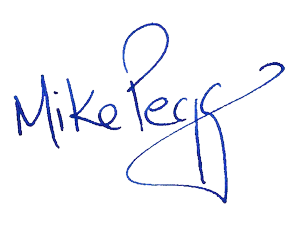 Mike Pegg